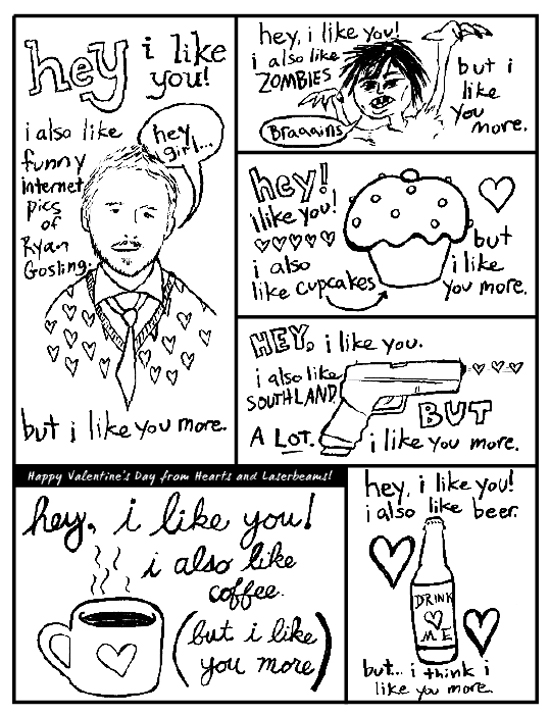 hey i like
you!
i also like
funny
internet
pics
of
Ryan
Gosling.
hey
girl...
but i like you more.
hey, i like you!
i also like
ZOMBIES
Braaains
but i
like
you
more.
hey!
i like you!
i also
like cupcakes
but
i like
you more.
HEY, i like you.
i also like
SOUTHLAND
A LOT.
BUT
i like you more.
Happy Valentine's Day from Hearts and Laserbeams!
hey, i like you!
i also like
coffee.
(but i like
you more)
hey, i like you!
i also like beer.
DRINK
ME
but... i think i
like you more.